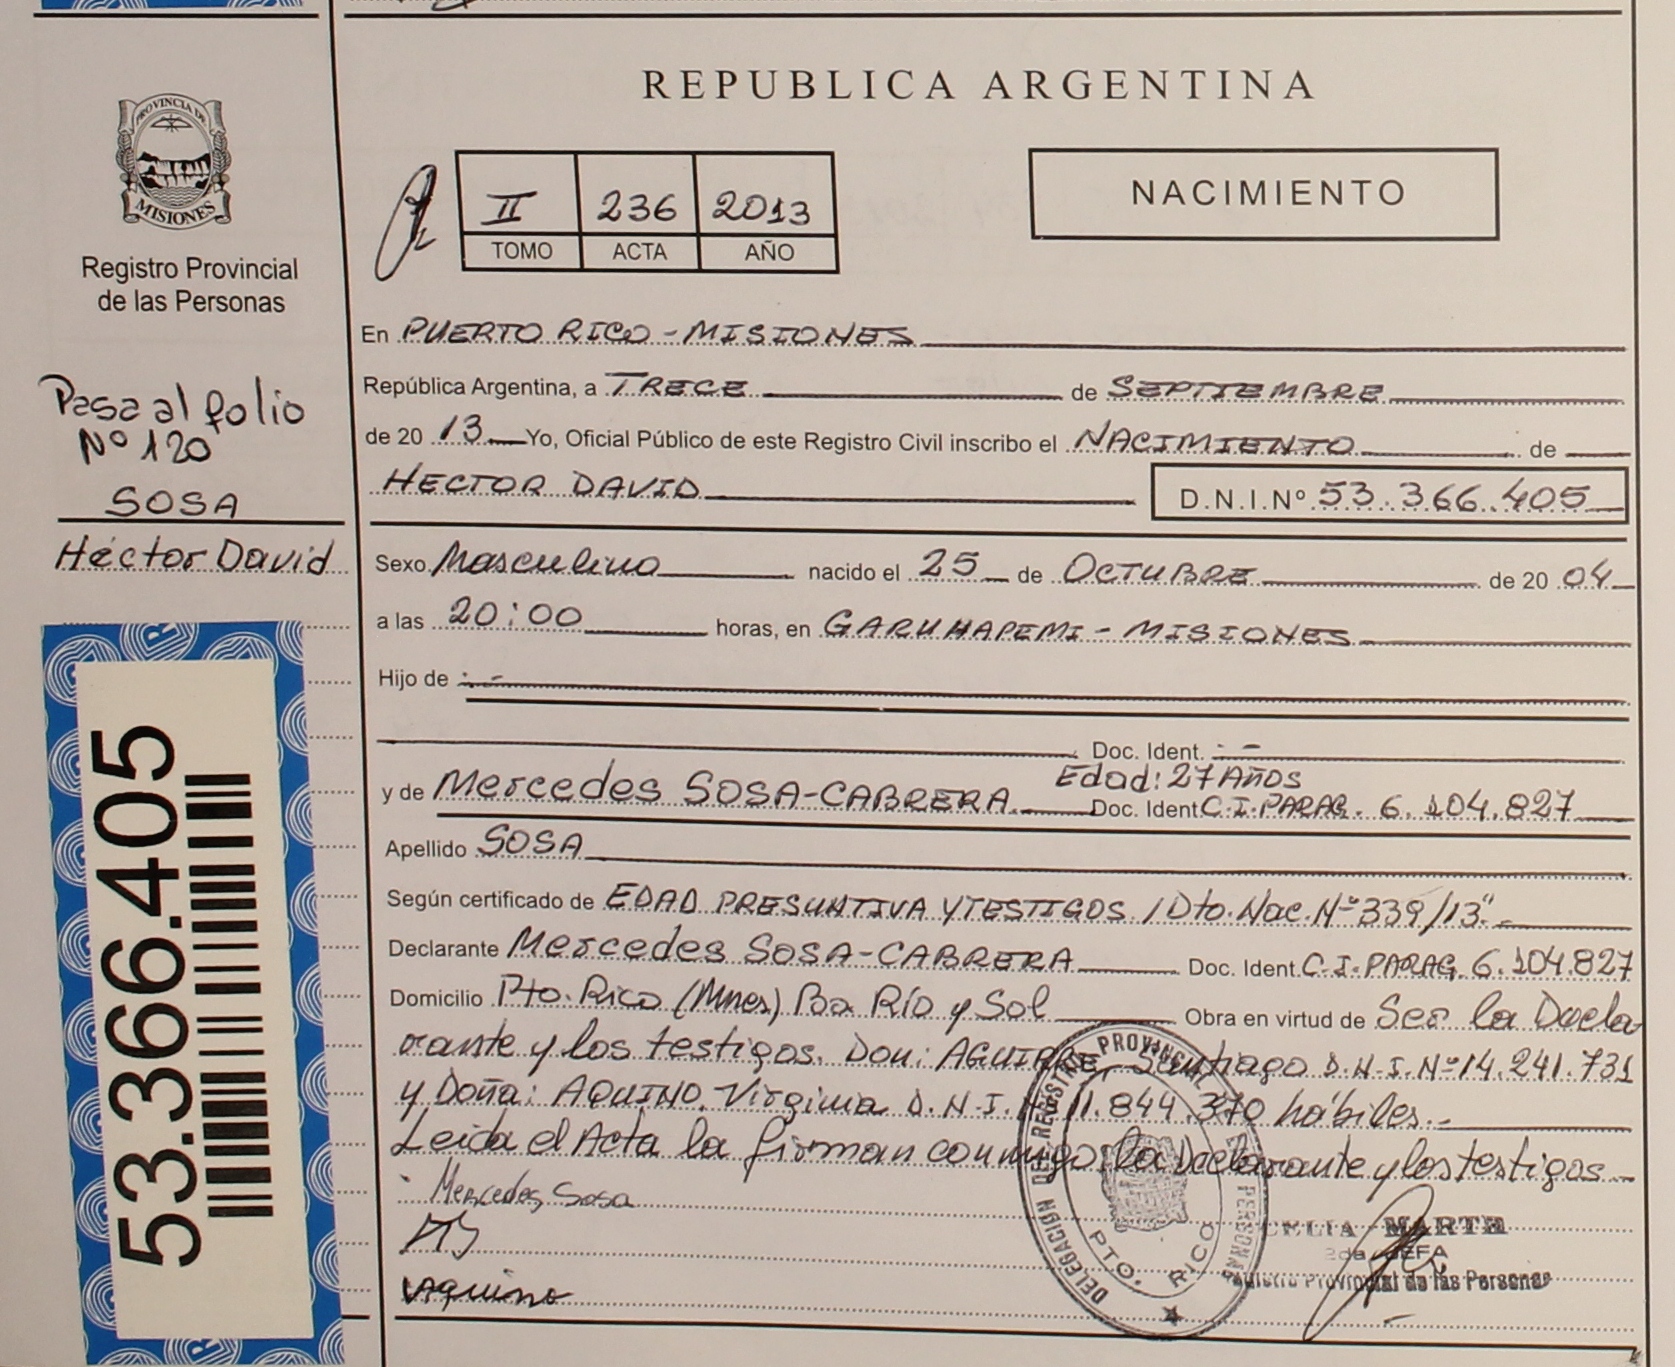 PROVINCIA DE
MISIONES
Registro Provincial
de las Personas
Pasa al folio
Nº 120
SOSA
Héctor David
53.366.405
REPUBLICA ARGENTINA
II 236 2013
TOMO ACTA AÑO
NACIMIENTO
En PUERTO RICO - MISIONES
República Argentina, a TRECE de SEPTIEMBRE
de 20 13 Yo, Oficial Público de este Registro Civil inscribo el NACIMIENTO de
HECTOR DAVID D.N.I.Nº 53.366.405
Sexo Masculino nacido el 25 de OCTUBRE de 20 04
a las 20:00 horas, en GARUHAPEMI - MISIONES
Hijo de
Doc. Ident.
Edad: 27 AÑOS
y de Mercedes SOSA-CABRERA Doc. Ident C.I. PARAG. 6.104.827
Apellido SOSA
Según certificado de EDAD PRESUNTIVA Y TESTIGOS / Dto. Nac. Nº 339/13"
Declarante Mercedes SOSA-CABRERA Doc. Ident C.I. PARAG. 6.104.827
Domicilio Pto. Rico (Mnes) Bº Río y Sol Obra en virtud de Ser la Decla
rante y los testigos. Don: AGUIRRE, Santiago D.N.I. Nº 14.241.731
y Doña: AQUINO, Virginia D.N.I. Nº 11.844.370 hábiles.-
Leida el Acta la firman conmigo, la Declarante y los testigos
Mercedes Sosa
Vaquino
DELEGACION DEL REGISTRO PROVINCIAL PERSONAS
PTO. RICO
CELIA MARTA
2da JEFA
Registro Provincial de las Personas